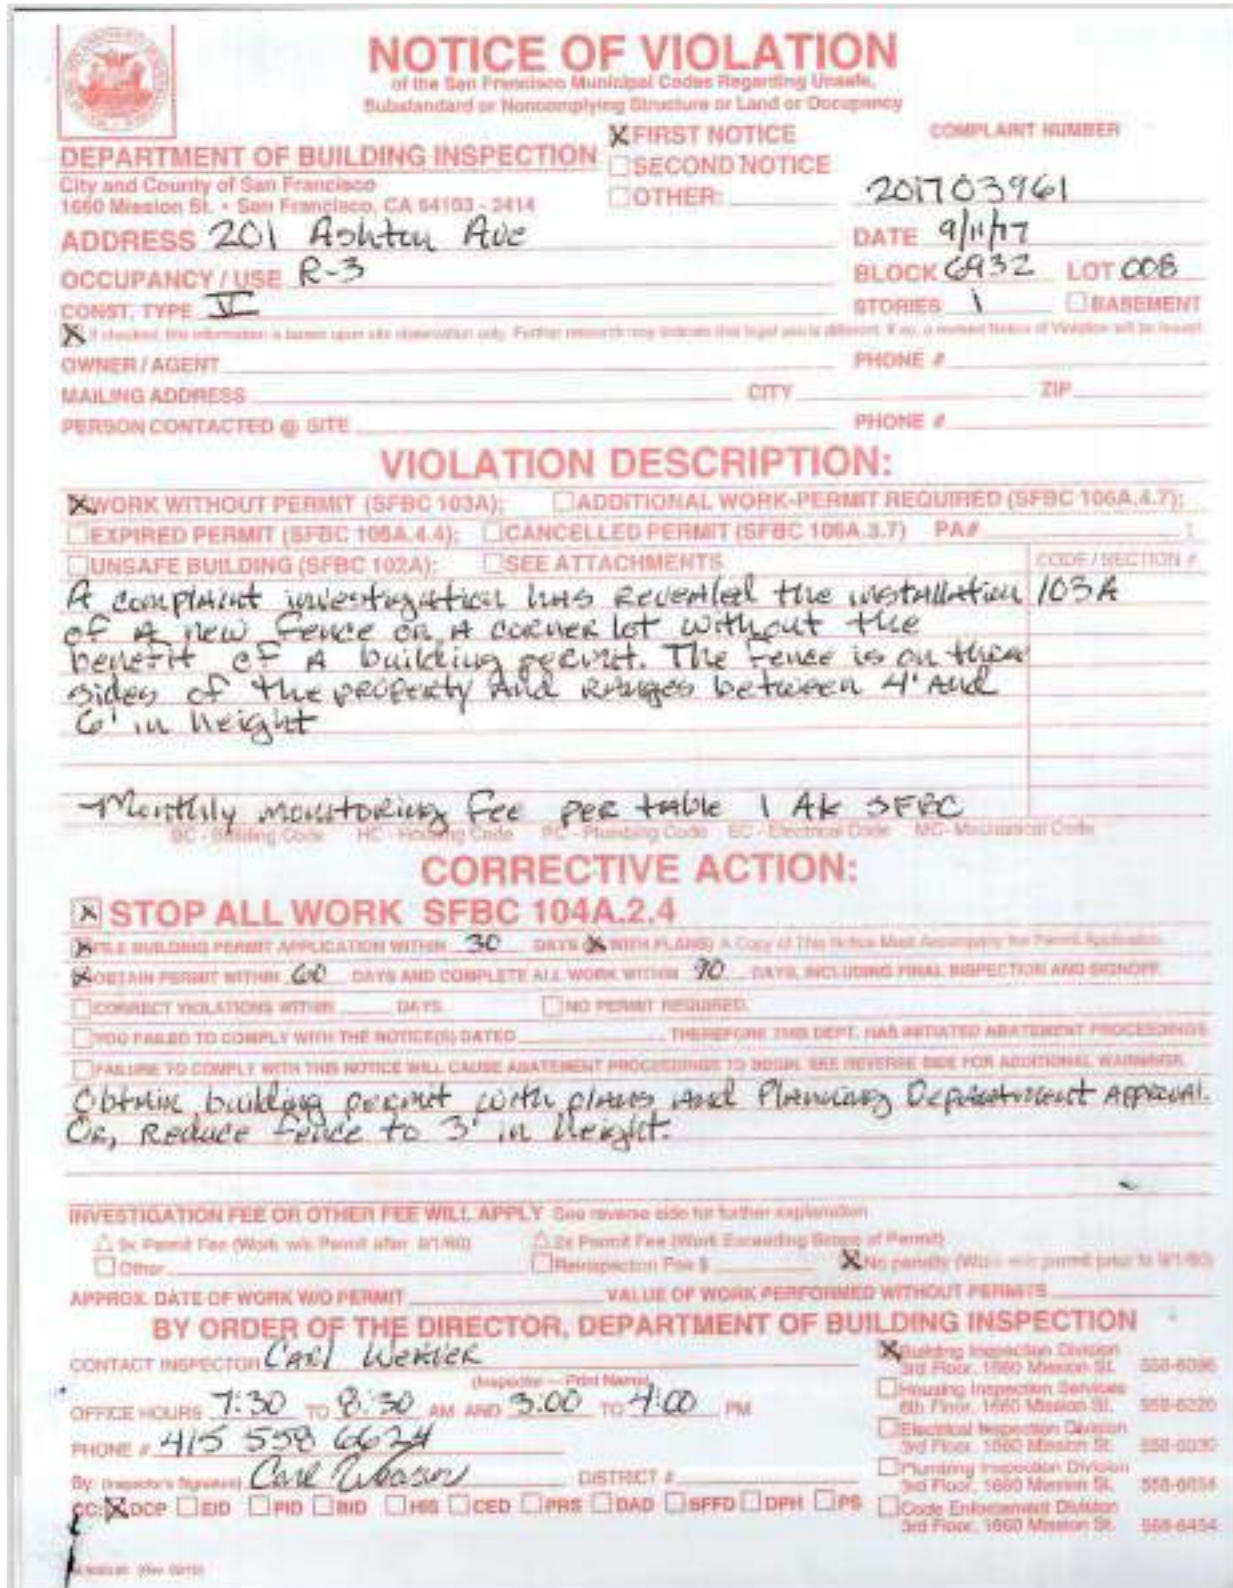 NOTICE OF VIOLATION
of the San Francisco Municipal Codes Regarding Unsafe,
Substandard or Noncomplying Structure or Land or Occupancy
DEPARTMENT OF BUILDING INSPECTION
City and County of San Francisco
1660 Mission St. • San Francisco, CA 94103 - 2414
X FIRST NOTICE
SECOND NOTICE
OTHER:
COMPLAINT NUMBER
201703961
ADDRESS 201 Ashton Ave DATE 9/11/17
OCCUPANCY / USE R-3 BLOCK 6932 LOT 008
CONST. TYPE V STORIES 1 BASEMENT
X If checked, this information is based upon site observation only. Further research may indicate that legal use is different. If so, a revised Notice of Violation will be issued.
OWNER / AGENT PHONE #
MAILING ADDRESS CITY ZIP
PERSON CONTACTED @ SITE PHONE #
VIOLATION DESCRIPTION:
X WORK WITHOUT PERMIT (SFBC 103A); ADDITIONAL WORK-PERMIT REQUIRED (SFBC 106A.4.7);
EXPIRED PERMIT (SFBC 106A.4.4); CANCELLED PERMIT (SFBC 106A.3.7) PA#
UNSAFE BUILDING (SFBC 102A); SEE ATTACHMENTS CODE / SECTION #
A complaint investigation has revealed the installation 103A
of A new fence on A corner lot without the
benefit of A building permit. The fence is on three
sides of the property And Ranges between 4' And
6' in height
-Monthly monitoring Fee per table 1 AK SFBC
BC - Building Code HC - Housing Code PC - Plumbing Code EC - Electrical Code MC - Mechanical Code
CORRECTIVE ACTION:
X STOP ALL WORK SFBC 104A.2.4
X FILE BUILDING PERMIT APPLICATION WITHIN 30 DAYS (X WITH PLANS) A Copy of This Notice Must Accompany the Permit Application
X OBTAIN PERMIT WITHIN 60 DAYS AND COMPLETE ALL WORK WITHIN 90 DAYS, INCLUDING FINAL INSPECTION AND SIGNOFF.
CORRECT VIOLATIONS WITHIN DAYS. NO PERMIT REQUIRED.
YOU FAILED TO COMPLY WITH THE NOTICE(S) DATED , THEREFORE THIS DEPT. HAS INITIATED ABATEMENT PROCEEDINGS.
FAILURE TO COMPLY WITH THIS NOTICE WILL CAUSE ABATEMENT PROCEEDINGS TO BEGIN. SEE REVERSE SIDE FOR ADDITIONAL WARNINGS.
Obtain building permit with plans And Planning Department Approval.
Or, Reduce fence to 3' in height.
INVESTIGATION FEE OR OTHER FEE WILL APPLY See reverse side for further explanation
9x Permit Fee (Work w/o Permit after 9/1/60) 2x Permit Fee (Work Exceeding Scope of Permit)
Other Reinspection Fee $ X No penalty (Work w/o permit prior to 9/1/60)
APPROX. DATE OF WORK W/O PERMIT VALUE OF WORK PERFORMED WITHOUT PERMITS
BY ORDER OF THE DIRECTOR, DEPARTMENT OF BUILDING INSPECTION
CONTACT INSPECTOR Carl Weaver
(Inspector — Print Name)
OFFICE HOURS 7:30 TO 8:30 AM AND 3:00 TO 4:00 PM
PHONE # 415 558 6634
By: (Inspector's Signature) Carl Weaver DISTRICT #
CC: X DCP EID PID BID HIS CED PRS DAD SFFD DPH PS
X Building Inspection Division
3rd Floor, 1660 Mission St. 558-6096
Housing Inspection Services
6th Floor, 1660 Mission St. 558-6220
Electrical Inspection Division
3rd Floor, 1660 Mission St. 558-6030
Plumbing Inspection Division
3rd Floor, 1660 Mission St. 558-6054
Code Enforcement Division
3rd Floor, 1660 Mission St. 558-6454